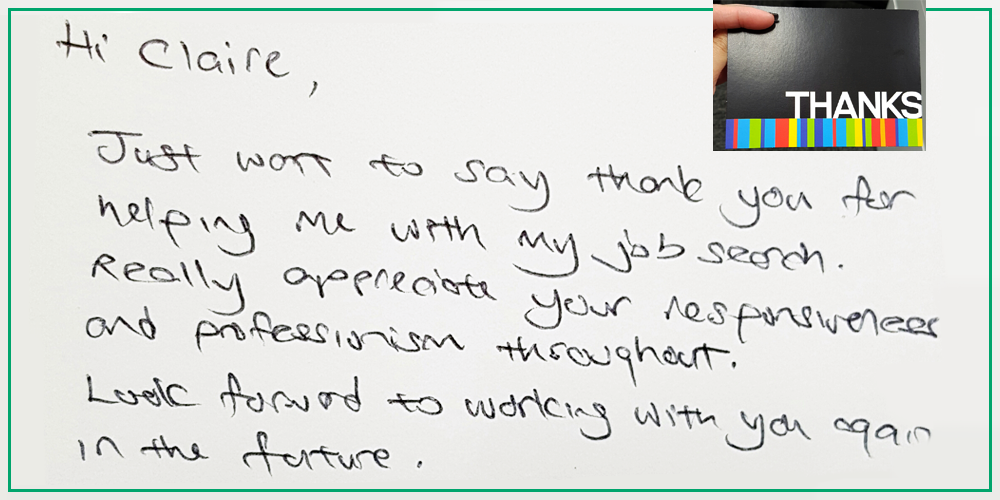 Hi Claire,
THANKS
Just want to say thank you for
helping me with my job search.
Really appreciate your responsiveness
and professionism throughout.
Look forward to working with you again
in the future.